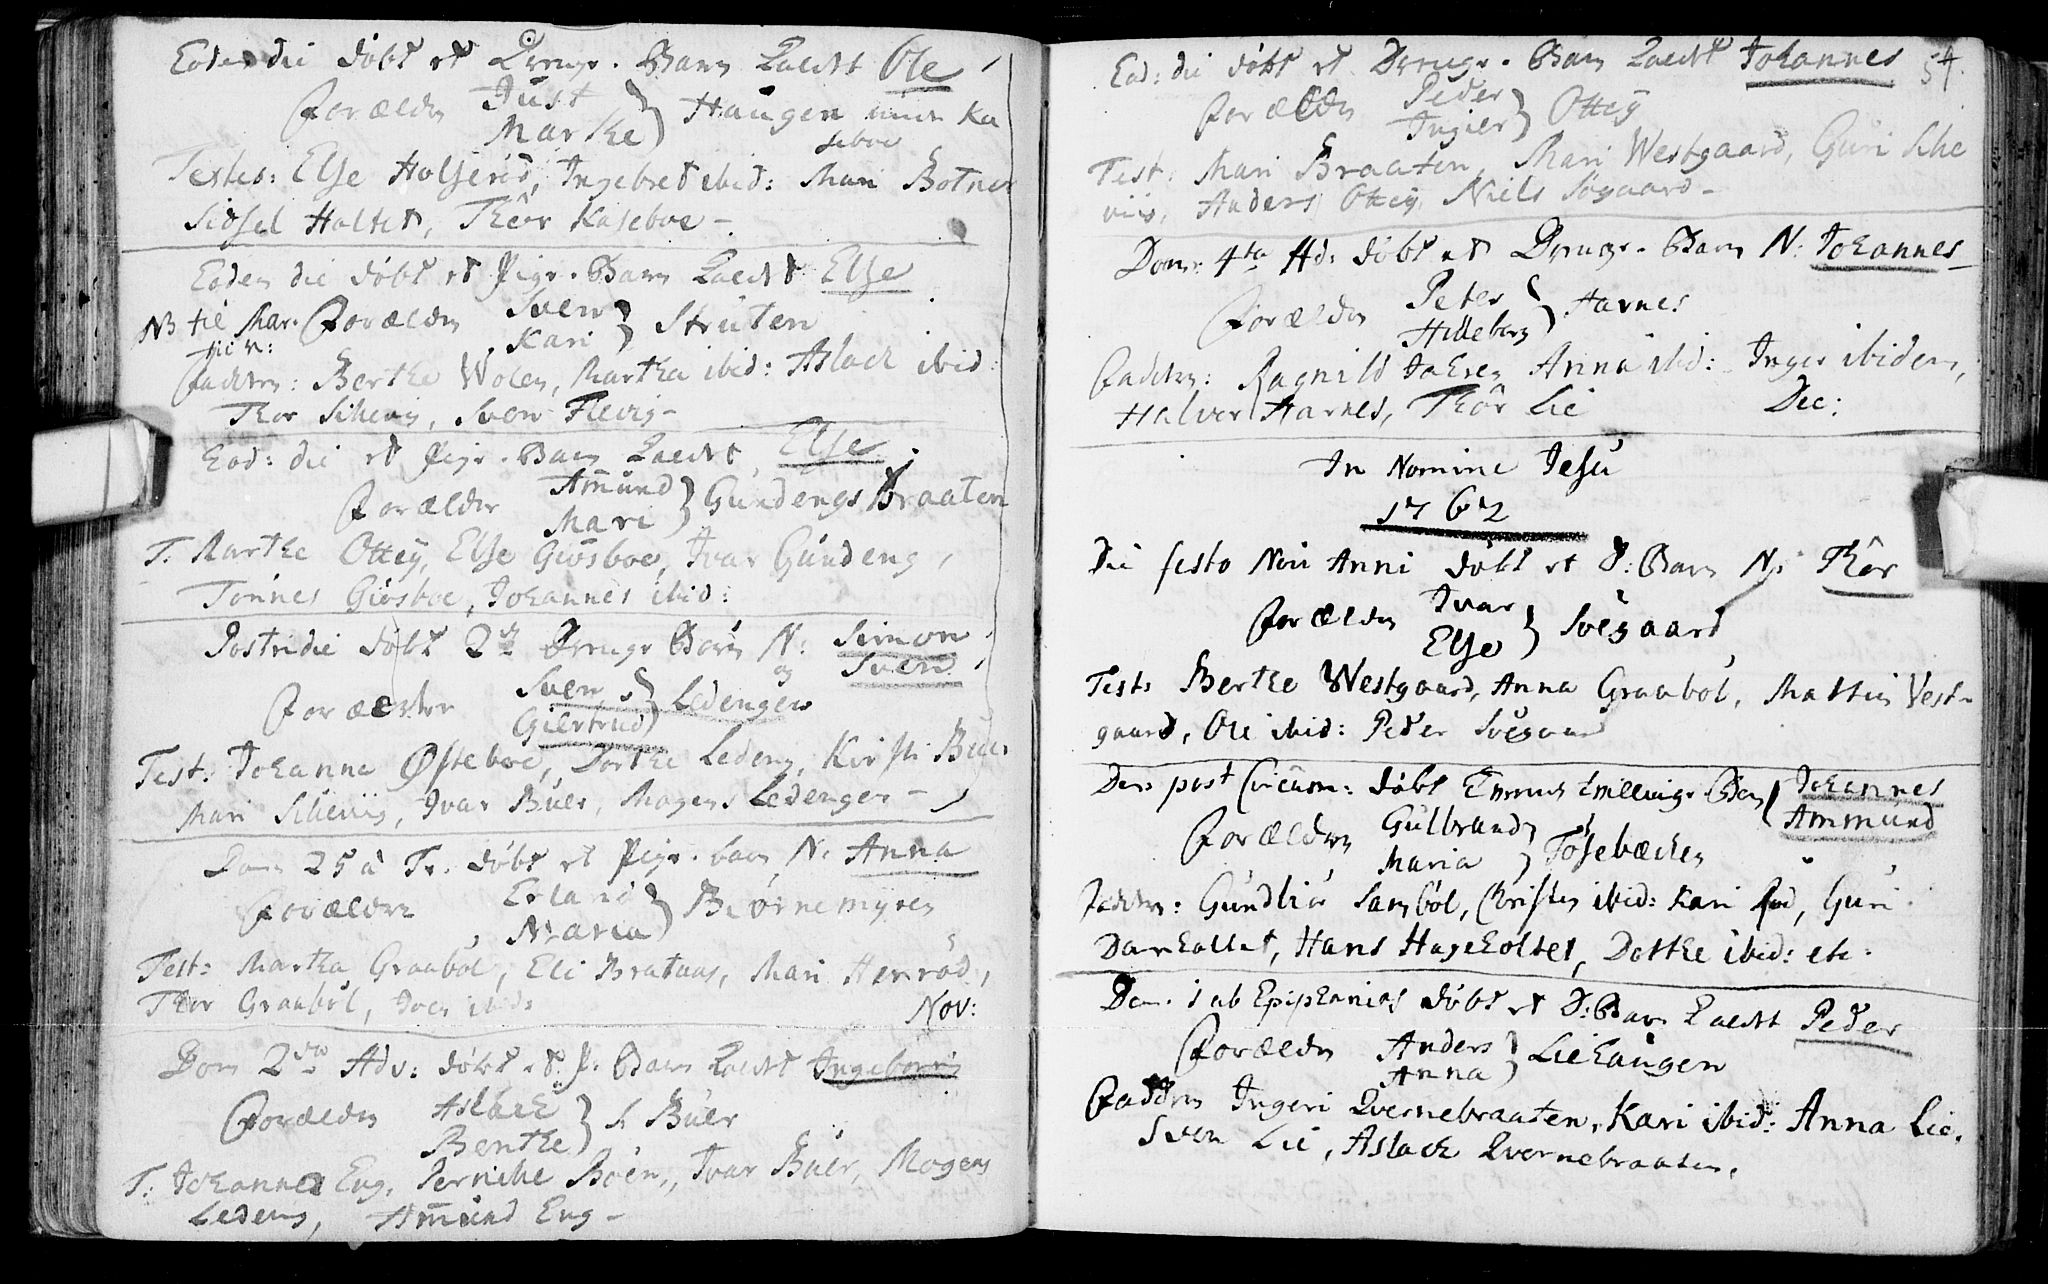 Eodem die døbt et Drenge-Barn kaldt Ole
Forældre Just
Marthe } Haugen under Ka
seboe
Testes: Else Holserød, Ingebret ibid: Mari Botner
Sidsel Holtet, Thor Kaseboe -
Eodem die døbt et Pige-Barn kaldt Else
NB til Mar. Forældre Sven
Kari } Struten
Faddere: Berthe Wolen, Martha ibid: Aslach ibid:
Thor Schevig, Sven Flevig -
Eod: die et Pige-Barn kaldt Else
Forælder Am̄und
Mari } Gundengs Braaten
T. Marthe Ottey, Else Giøsboe, Ivar Gundeng,
Tønnes Giøsboe, Johannes ibid:
Postridie døbt 2de Drenge Børn N: Simon
og Sven
Forældre Sven
Giertrud } Ledengen
Test: Johanna Østeboe, Dorthe Ledeng, Kirsti Buer
Mari Scheviig, Ivar Buer, Mogens Ledengen -
Dom 25 à Tr. døbt et Pige-barn N: Anna
Forældre Erland
Maria } Biørnemyren
Test: Martha Graabøl, Eli Brataas, Mari Herrød,
Thor Graabøl, Iver ibid:
Nov:
Dom 2da Adv: døbt et P: Barn kaldt Ingeborrig
Forældre Aslach
Benthe } S Buer
T: Johannes Eng, Pernille Boen, Ivar Buer, Mogens
Ledeng, Am̄und Eng -
54.
Eod: die døbt et Drenge-Barn kaldt Johannes
Forældre Peder
Ingier } Ottey
Test: Mari Braaten, Mari Westgaard, Guri Sche
viis, Anders Ottey, Niels Søgaard -
Dom: 4ta Ad: døbt et Drenge-Barn N: Johannes -
Forældre Peter
Hilleborg } Harnes
Faddere: Ragnild Anna ibid: Inger ibidem,
Halvor Harnes, Thor Lie Dec:
In Nomine Jesu
1762
Die festo Novi Anni døbt et D: Barn N: Thor
Forældre Ivar
Else } Søegaard
Test: Berthe Westgaard, Anna Graabøl, Mattis Vest-
gaard, Ole ibid: Peder Søegaard
Dom post Circum: døbt Tvillinge-Børn { Johannes
Ammund
Forældre Gulbrand
Maria } Tosebæchen
Faddere: Gundbiør Sambøl, Christen ibid: Kari Rød, Guri
Damholtet, Hans Hageholtet, Dorthe ibid: etc.
Dom. 1 ab Epiphanias døbt et D: Barn kaldt Peder
Forældre Anders
Anna } Liehaugen
Faddre Ingeri Qvernebraaten, Kari ibid: Anna Lie.
Sven Lie, Aslach Qvernebraaten.